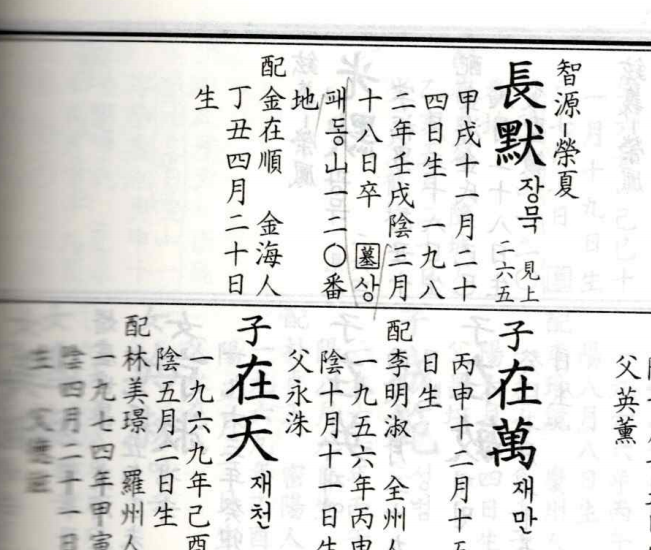 智源-榮夏
長默 장묵 見上二六五
甲戌十 月二十
四日生 一九八
二年壬戌陰三月
十八日卒 墓상
패동山二〇番
地
配金在順 金海人
丁丑四月二十日
生
父英薰
子在萬 재만
丙申十二月十五
日生
配李明淑 全州人
一九五六年丙申
陰十月十一日生
父永洙
子在天 재천
一九六九年己酉
陰五月二日生
配林美璟 羅州人
一九七四年甲寅
陰四月二十一日
生